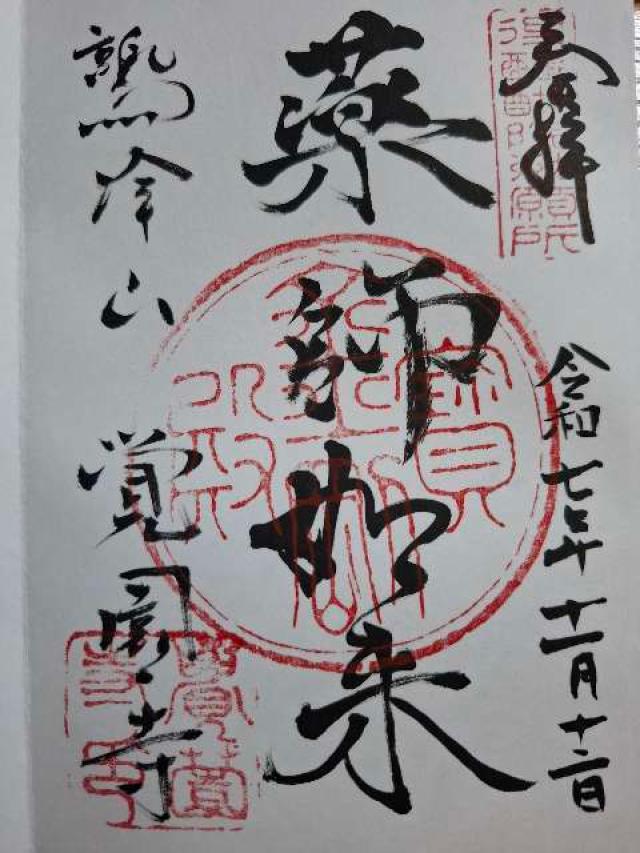 奉拝
令和七年十一月十二日
薬師如来
鷲峰山
覚園寺